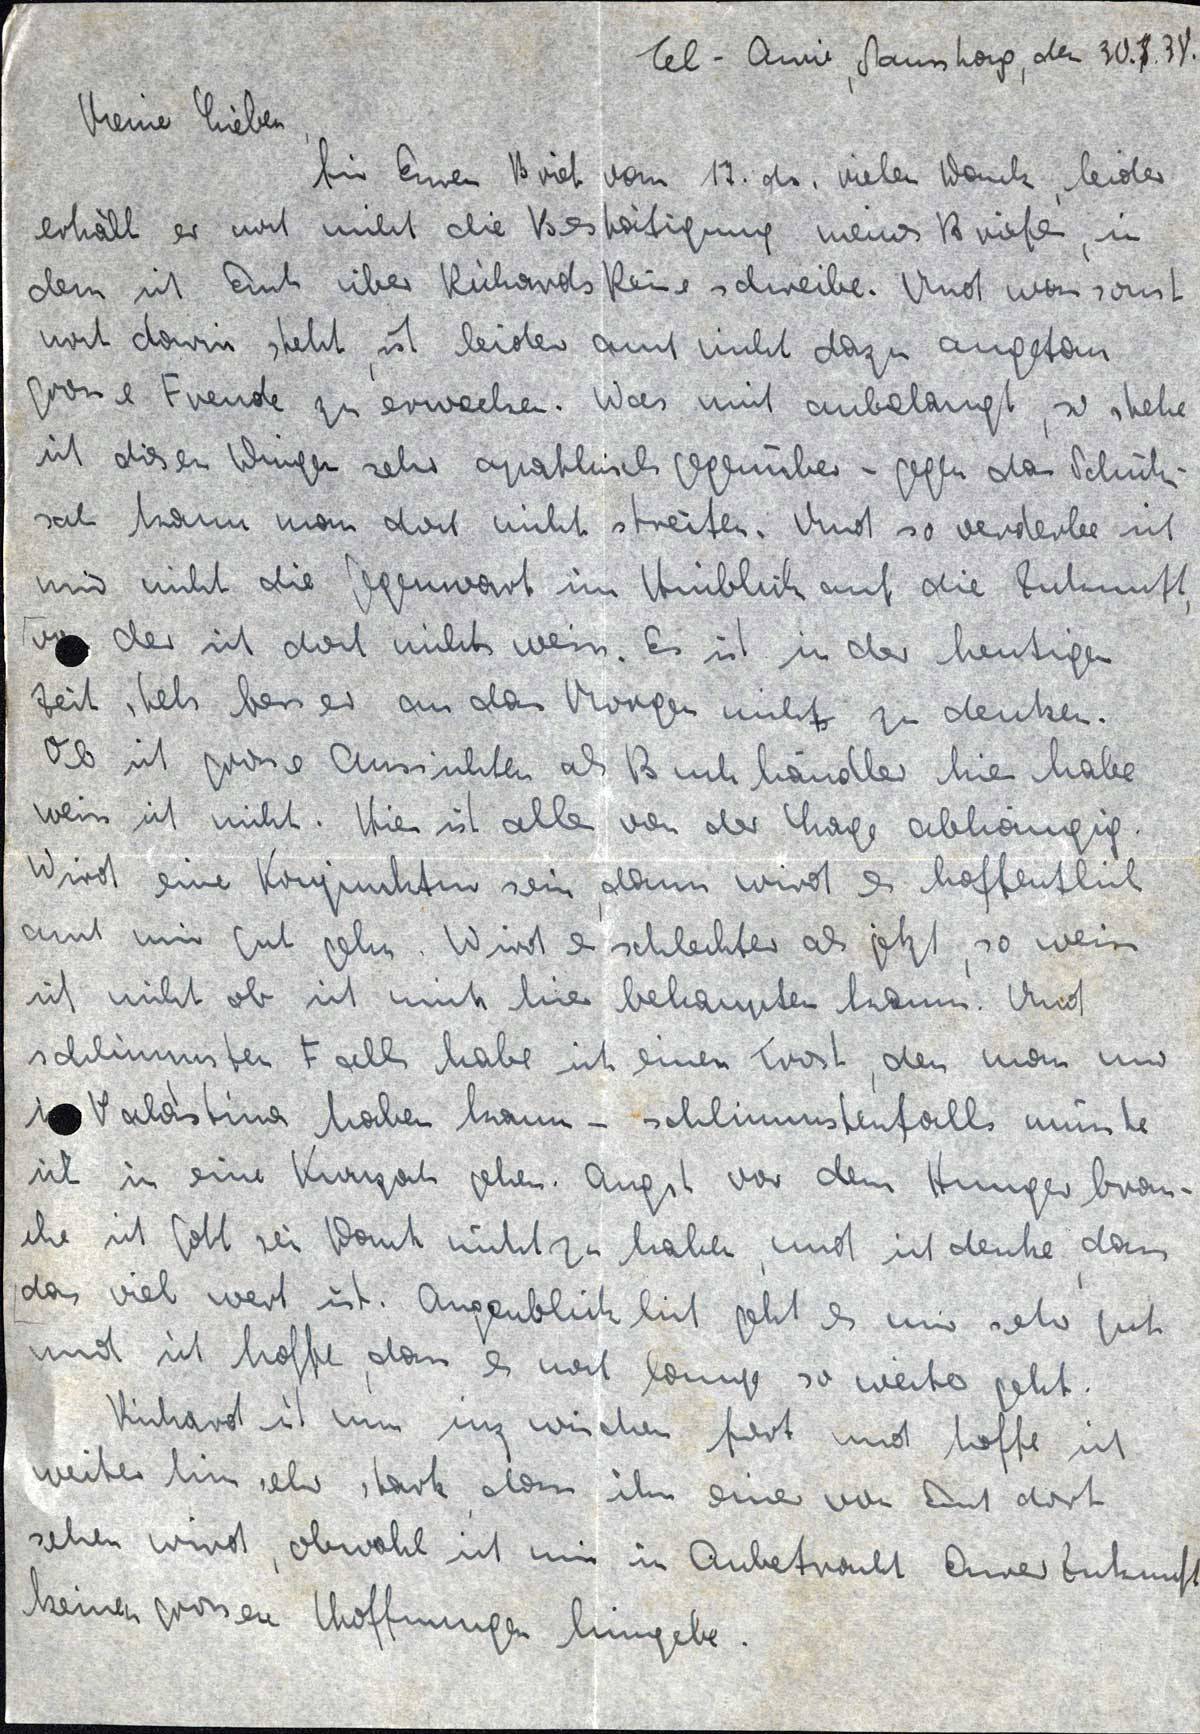 Tel-Awiw, Samstag, den 30.7.38.
Meine Lieben,
für Euren Brief vom 17. ds. vielen Dank, leider
erhält er noch nicht die Bestätigung meines Briefes, in
dem ich Euch über Richards Reise schreibe. Und was sonst
noch darin steht, ist leider auch nicht dazu angetan
grosse Freude zu erwecken. Was mich anbelangt, so stehe
ich diesen Dingen sehr apathisch gegenüber - gegen das Schick-
sal kann man doch nicht streiten. Und so verderbe ich
mir nicht die Gegenwart im Hinblick auf die Zukunft,
von der ich doch nichts weiss. Es ist in der heutigen
Zeit stets besser an das Morgen nicht zu denken.
Ob ich grosse Aussichten als Buchhändler hier habe
weiss ich nicht. Hier ist alles von der Lage abhängig.
Wird eine Konjunktur sein, dann wird es hoffentlich
auch mir gut gehn. Wird es schlechter als jetzt, so weiss
ich nicht ob ich mich hier behaupten kann. Und
schlimmsten Falls habe ich einen Trost, den man nur
in Palästina haben kann - schlimmstenfalls müsste
ich in eine Kwuzah gehen. Angst vor dem Hunger brau-
che ich Gott sei Dank nicht zu haben, und ich denke, dass
das viel wert ist. Augenblicklich geht es mir sehr gut
und ich hoffe, dass es noch lange so weiter geht.
Richard ist nun inzwischen fort und hoffe ich
weiter hin sehr stark, dass ihn einer von Euch dort
sehen wird, obwohl ich mir in Anbetracht Eurer Zukunft
keinen grossen Hoffnungen hingebe.